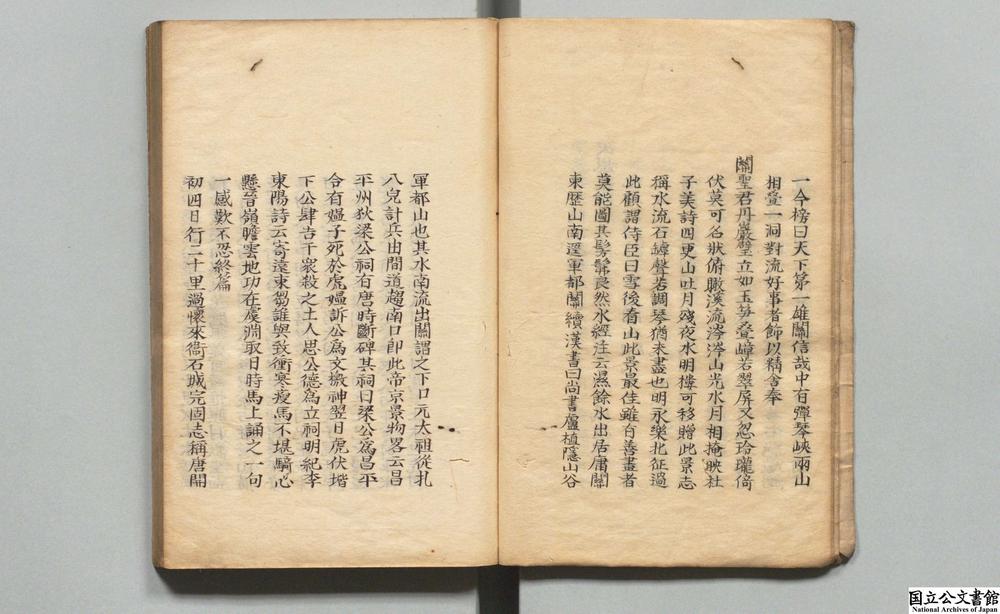 一今榜曰天下第一雄關信哉中有彈琴峽兩山
相疊一洞對流好事者飾以精舍奉
關聖君丹巖壁立如玉笋疊嶂若翠屏又忽玲瓏倚
伏莫可名狀俯瞰溪流涔涔山光水月相掩映杜
子美詩四更山吐月殘夜水明樓可移贈此景志
稱水流石罅聲若調琴猶未盡也明永樂北征過
此顧謂侍臣曰雪後看山此景最佳雖有善畫者
莫能圖其髣髴良然水經注云濕餘水出居庸關
東歷山南逕軍都關續漢書曰尚書盧植隱山谷
軍都山也其水南流出關謂之下口元太祖從扎
八兒計兵由間道趨南口即此帝京景物畧云昌
平州狄梁公祠有唐時斷碑其祠曰梁公為昌平
令有媼子死於虎媼訴公為文檄神翌日虎伏堦
下公肆告于衆殺之土人思公德為立祠明紀李
東陽詩云寄遠東芻誰與致衝寒瘦馬不堪騎心
懸晉嶺瞻雲地功在虞淵取日時馬上誦之一句
一感歎不忍終篇
初四日行二十里過懷來衞石城完固志稱唐開
国立公文書館
National Archives of Japan